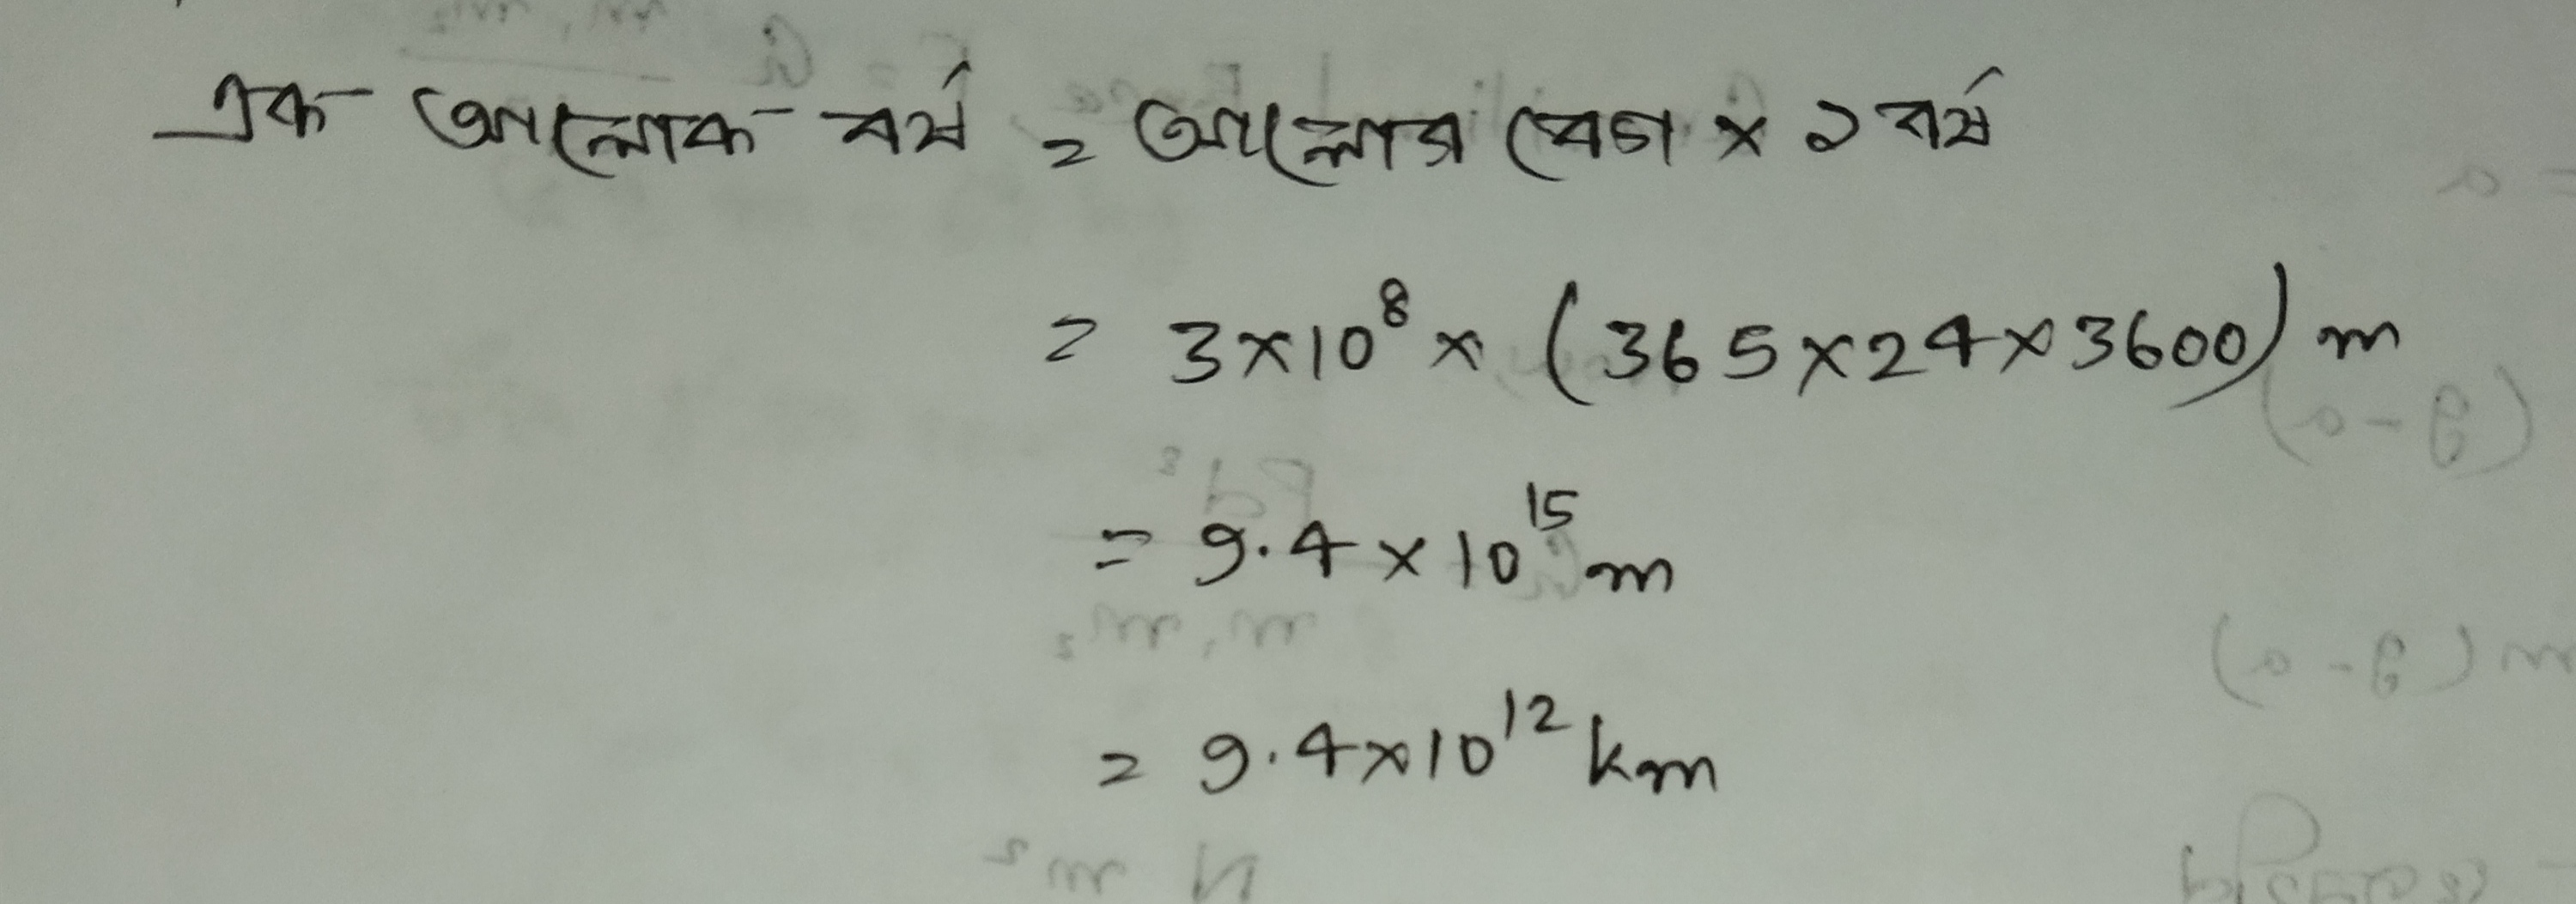 এক আলোক বর্ষ = আলোর বেগ × ১ বর্ষ
= 3×10⁸ × (365×24×3600) m
= 9.4 × 10¹⁵ m
= 9.4×10¹² km